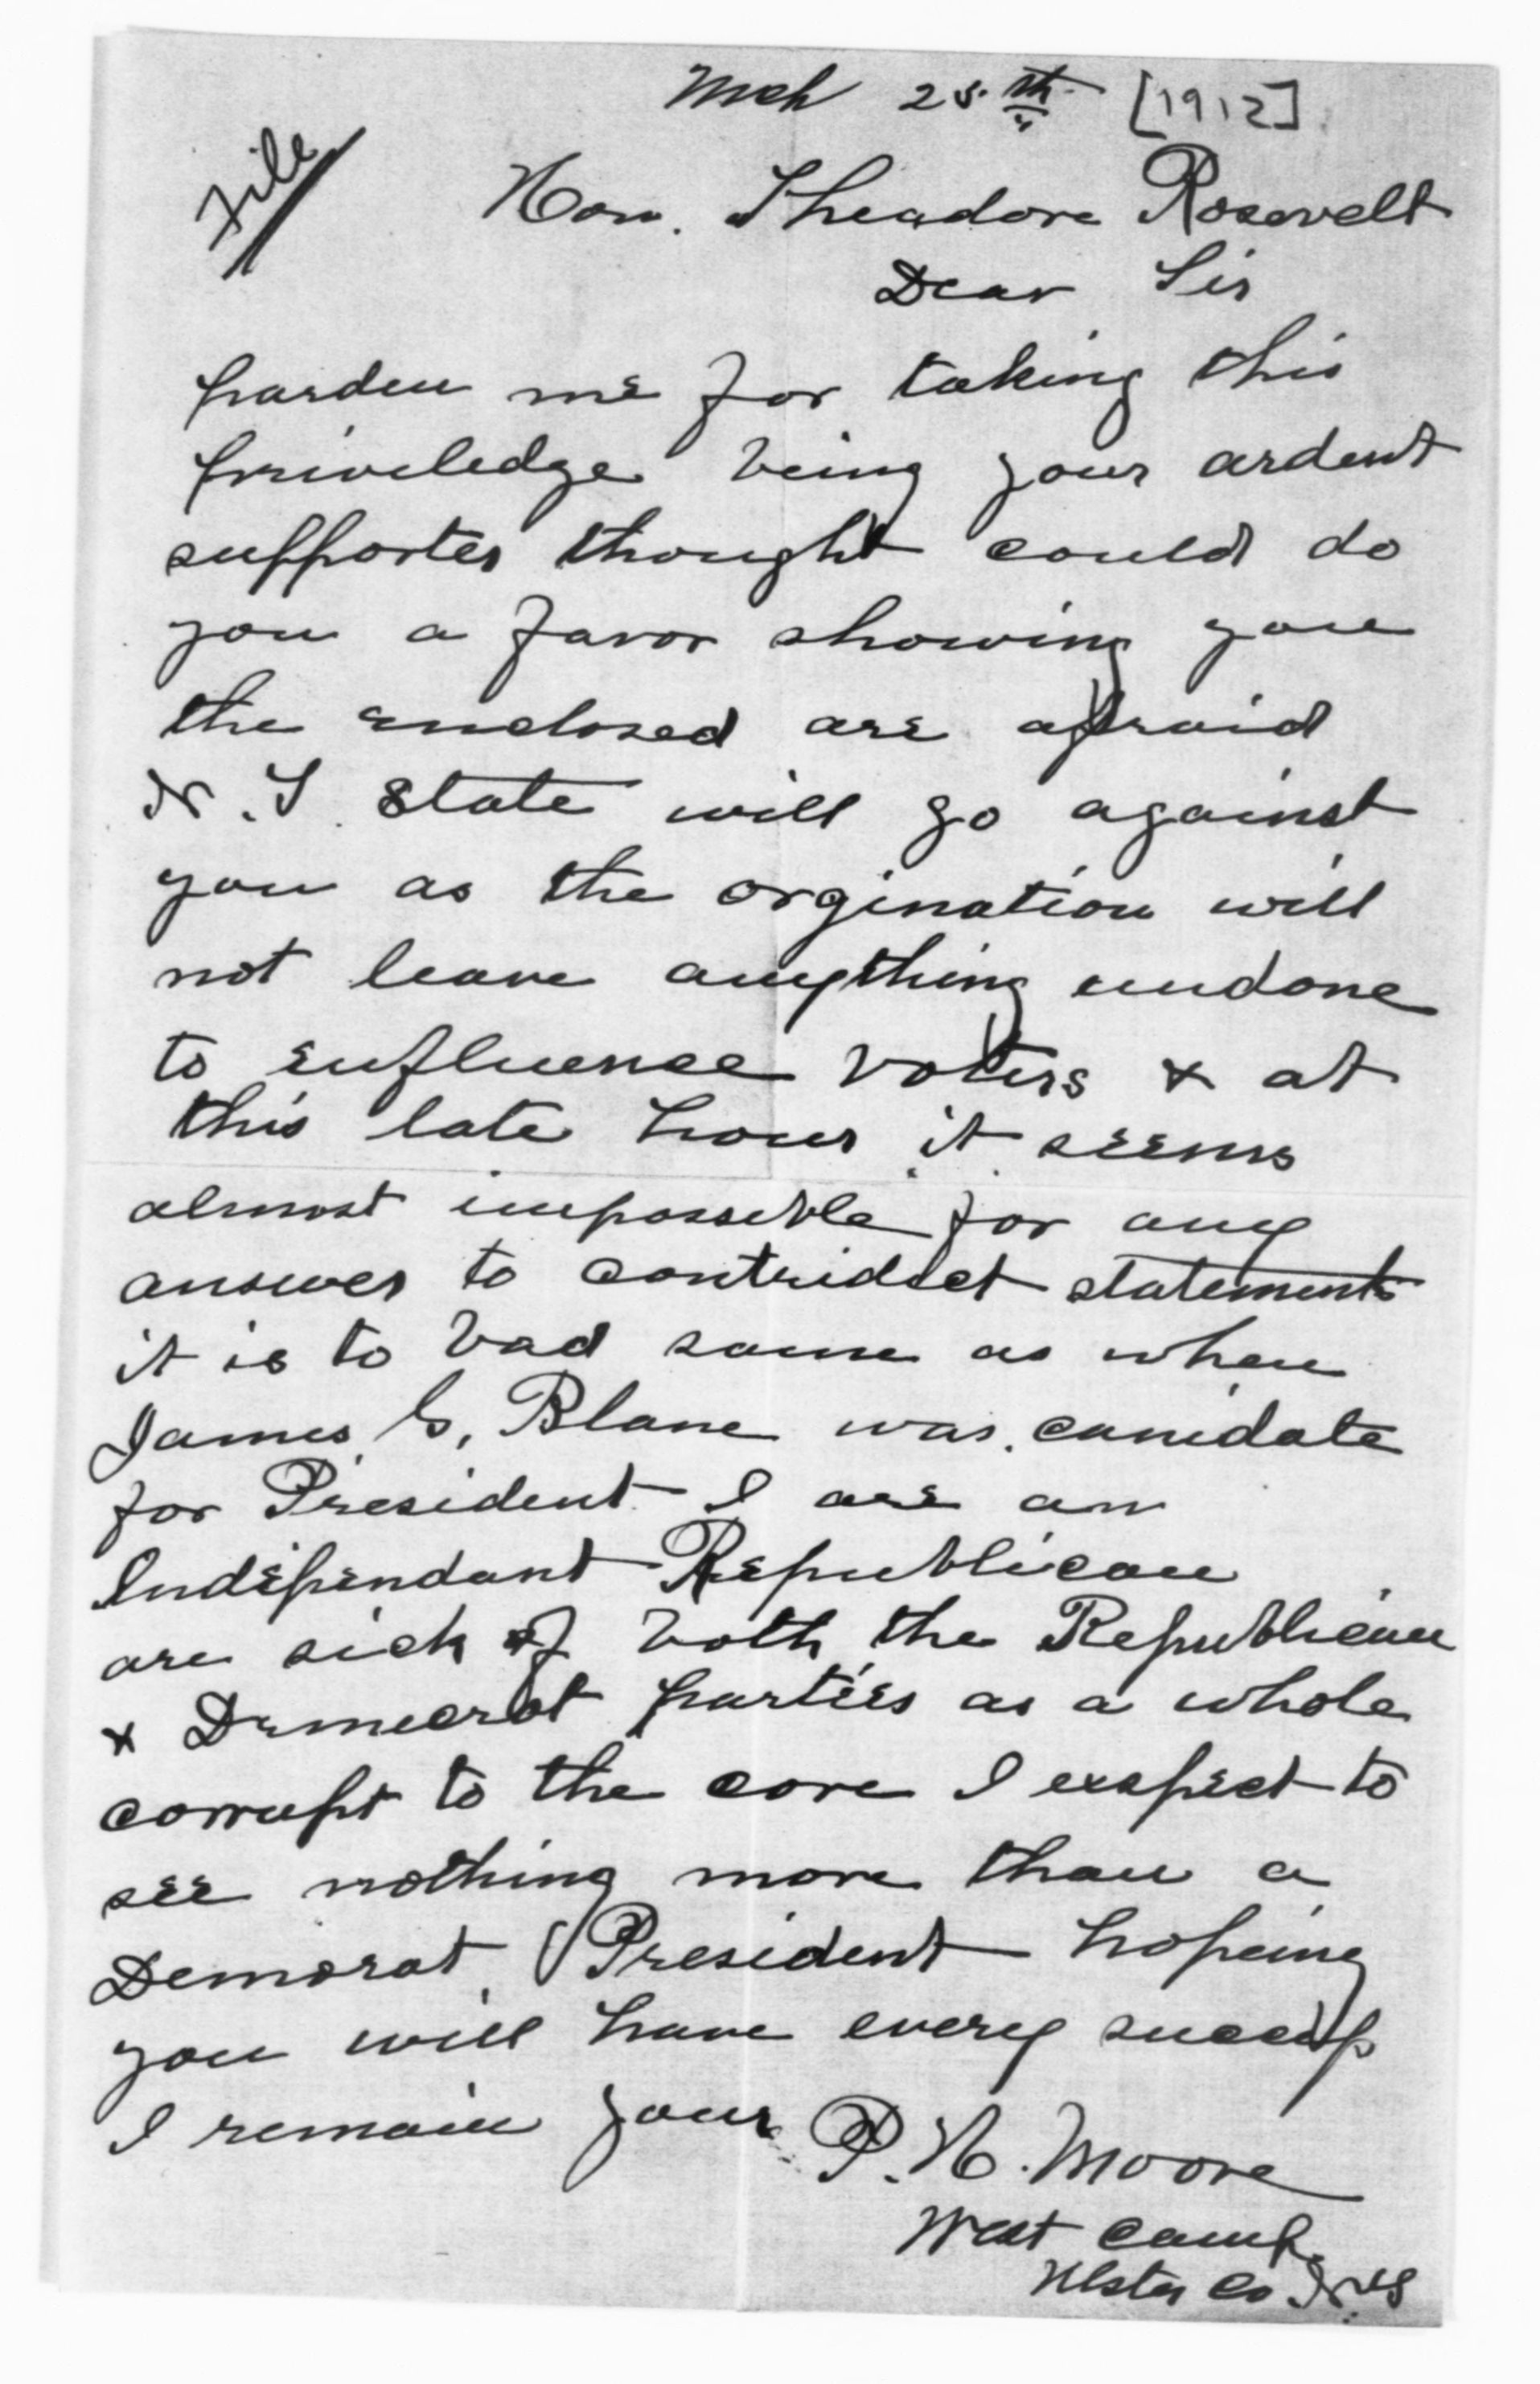 Mch 25th [1912]
File
Hon. Theadore Rosevelt
Dear Sir
parden me for taking this
priveledge being your ardent
supporter thought could do
you a favor showing you
the enclosed are afraid
N.Y. State will go against
you as the orgination will
not leave anything undone
to influence voters & at
this late hour it seems
almost impossible for any
answer to contridict statements
it is to bad same as when
James G. Blane was canidate
for President I are an
Indépendant Republican
are sick of both the Republican
& Dimecrat parties as a whole
corrupt to the core I exspect to
see nothing more than a
Demorat President hopeing
you will have every success
I remain your P. H. Moore
West Camp
Ulster Co N.Y.